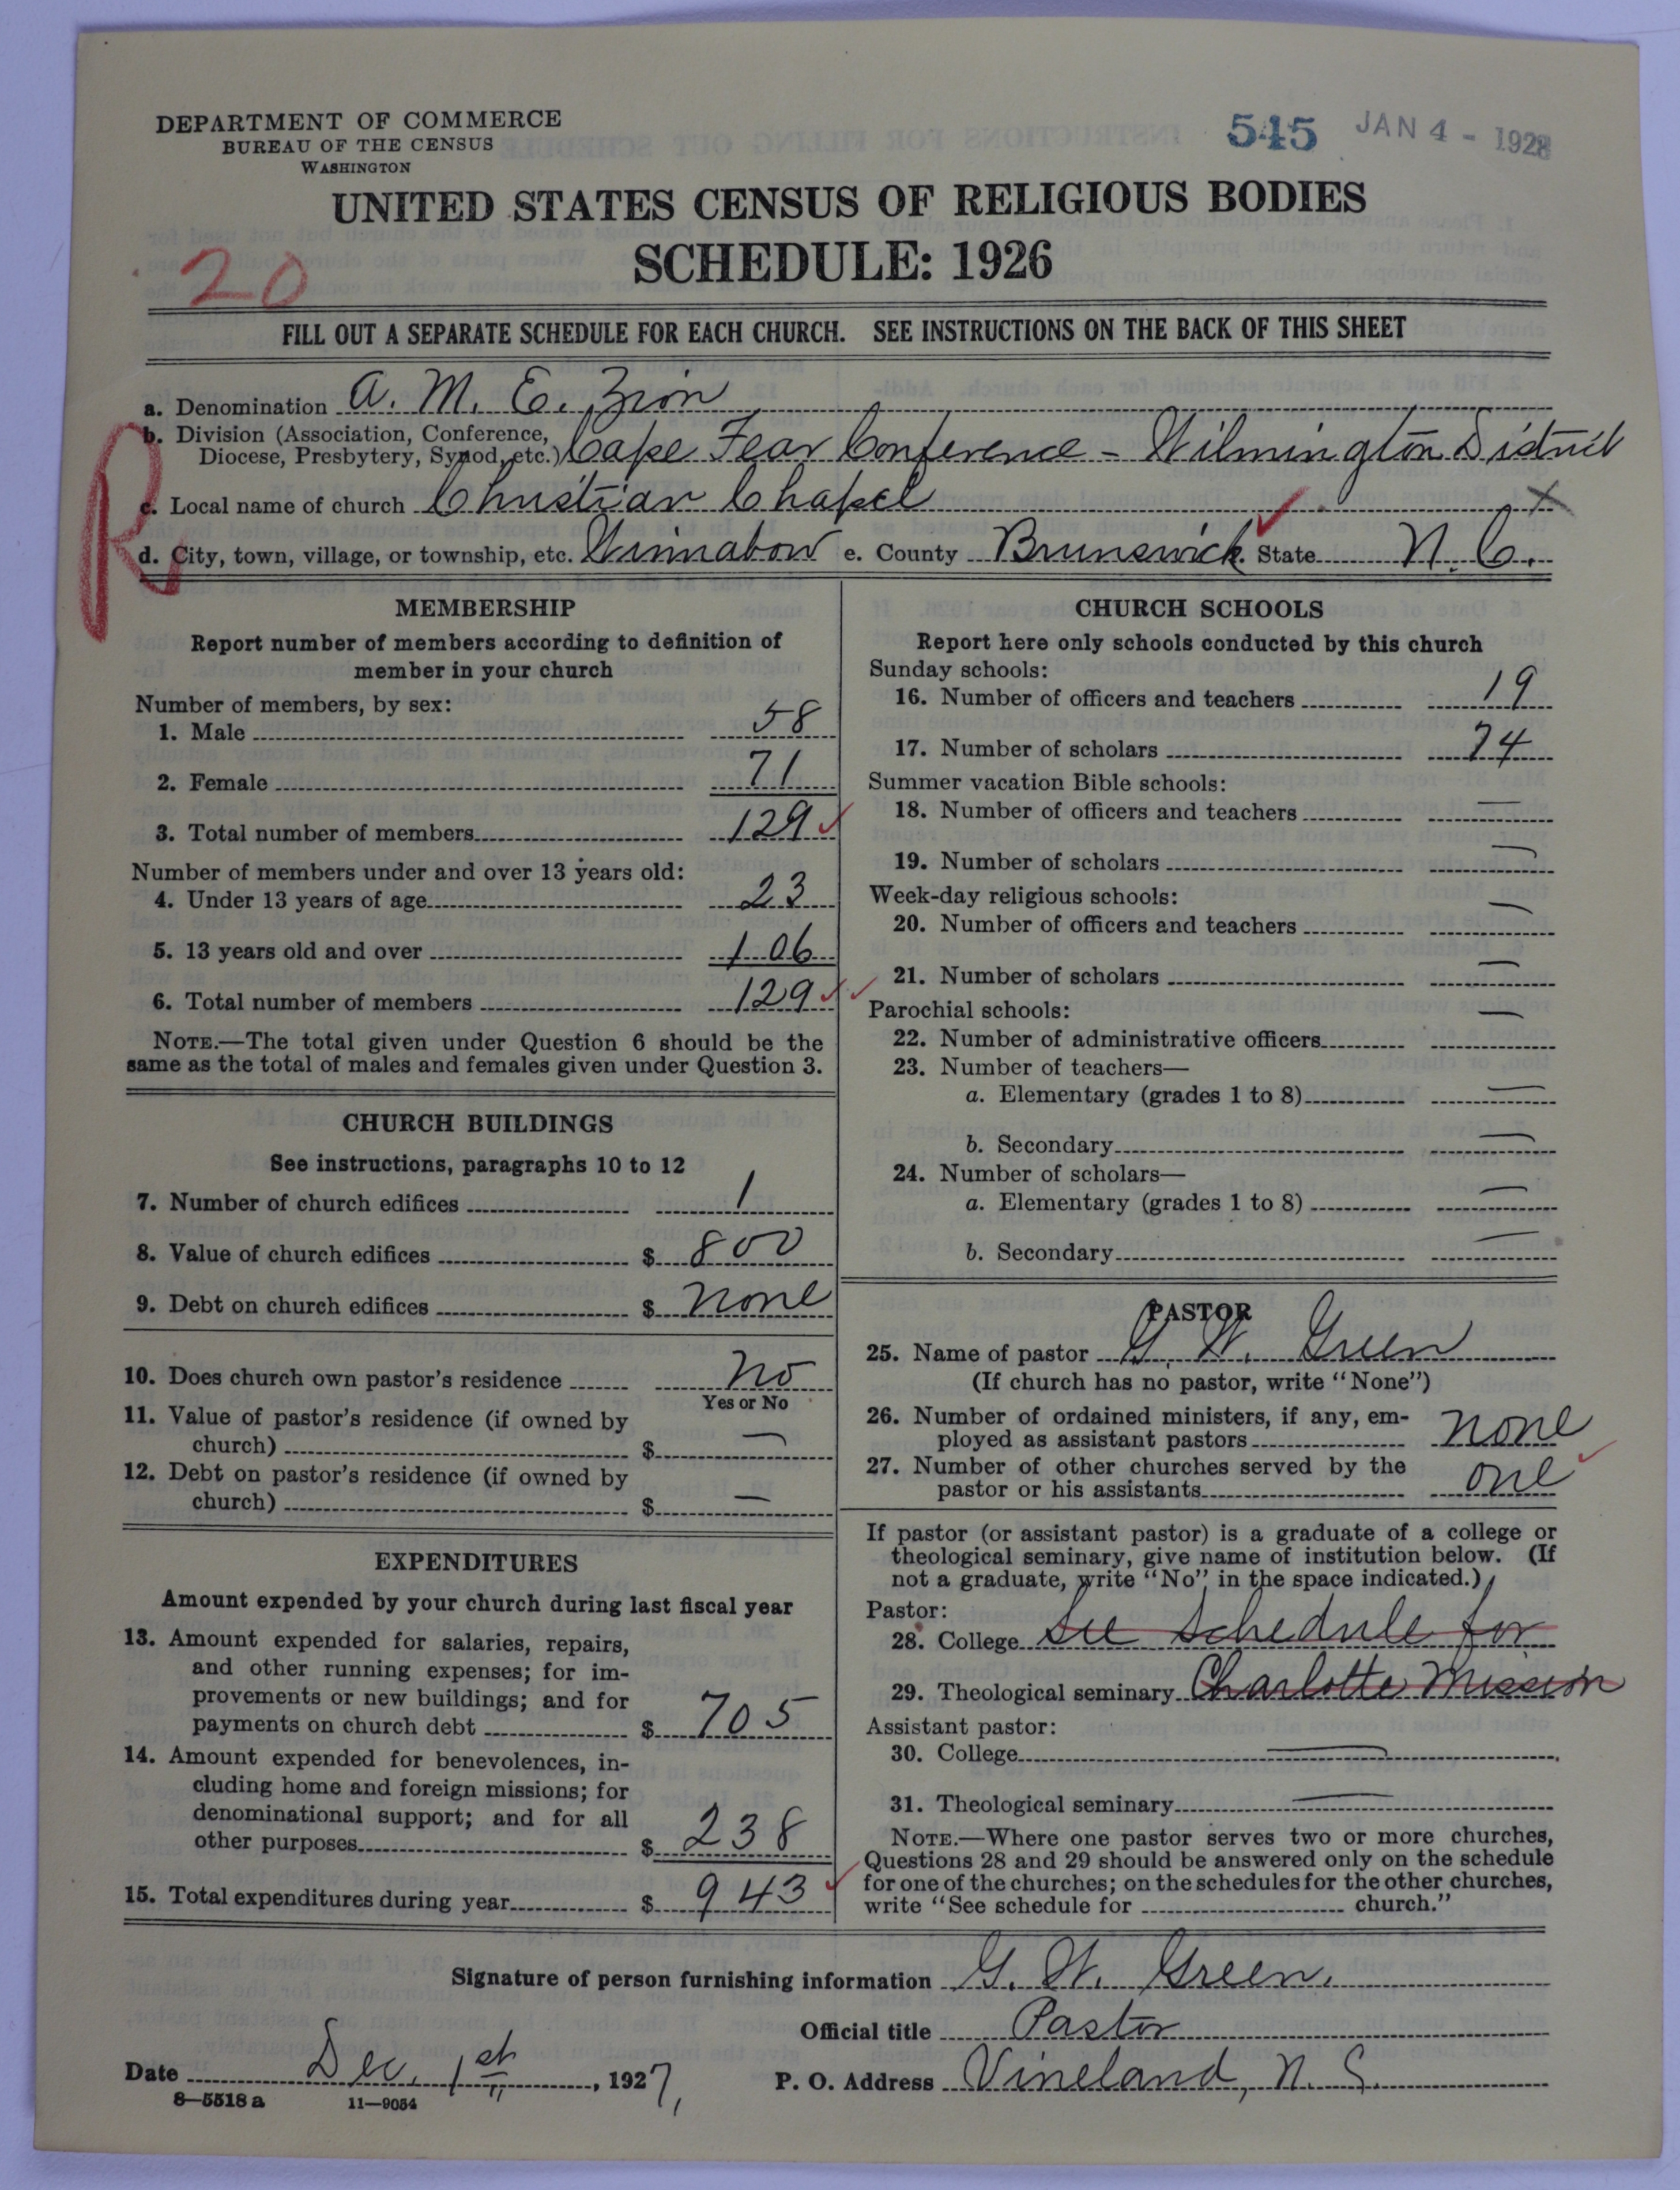 DEPARTMENT OF COMMERCE
BUREAU OF THE CENSUS
WASHINGTON
545 JAN 4 - 1928
UNITED STATES CENSUS OF RELIGIOUS BODIES
SCHEDULE: 1926
20
FILL OUT A SEPARATE SCHEDULE FOR EACH CHURCH. SEE INSTRUCTIONS ON THE BACK OF THIS SHEET
R
a. Denomination A. M. E. Zion
b. Division (Association, Conference, Diocese, Presbytery, Synod, etc.) Cape Fear Conference - Wilmington District
c. Local name of church Christian Chapel X
d. City, town, village, or township, etc. Winnabow e. County Brunswick State N. C.
MEMBERSHIP
Report number of members according to definition of
member in your church
Number of members, by sex:
1. Male 58
2. Female 71
3. Total number of members 129
Number of members under and over 13 years old:
4. Under 13 years of age 23
5. 13 years old and over 106
6. Total number of members 129
NOTE.—The total given under Question 6 should be the
same as the total of males and females given under Question 3.
CHURCH BUILDINGS
See instructions, paragraphs 10 to 12
7. Number of church edifices 1
8. Value of church edifices $ 800
9. Debt on church edifices $ None
10. Does church own pastor's residence No
Yes or No
11. Value of pastor's residence (if owned by
church) $ —
12. Debt on pastor's residence (if owned by
church) $ —
EXPENDITURES
Amount expended by your church during last fiscal year
13. Amount expended for salaries, repairs,
and other running expenses; for im-
provements or new buildings; and for
payments on church debt $ 705
14. Amount expended for benevolences, in-
cluding home and foreign missions; for
denominational support; and for all
other purposes $ 238
15. Total expenditures during year $ 943
CHURCH SCHOOLS
Report here only schools conducted by this church
Sunday schools:
16. Number of officers and teachers 19
17. Number of scholars 74
Summer vacation Bible schools:
18. Number of officers and teachers —
19. Number of scholars —
Week-day religious schools:
20. Number of officers and teachers —
21. Number of scholars —
Parochial schools:
22. Number of administrative officers —
23. Number of teachers—
a. Elementary (grades 1 to 8) —
b. Secondary —
24. Number of scholars—
a. Elementary (grades 1 to 8) —
b. Secondary —
PASTOR
25. Name of pastor G. W. Green
(If church has no pastor, write "None")
26. Number of ordained ministers, if any, em-
ployed as assistant pastors None
27. Number of other churches served by the
pastor or his assistants One
If pastor (or assistant pastor) is a graduate of a college or
theological seminary, give name of institution below. (If
not a graduate, write "No" in the space indicated.)
Pastor:
28. College See schedule for
29. Theological seminary Charlotte Mission
Assistant pastor:
30. College —
31. Theological seminary —
NOTE.—Where one pastor serves two or more churches,
Questions 28 and 29 should be answered only on the schedule
for one of the churches; on the schedules for the other churches,
write "See schedule for church."
Signature of person furnishing information G. W. Green.
Official title Pastor
Date Dec. 1st, 1927, P. O. Address Vineland, N. C.
8—5518 a 11—9054